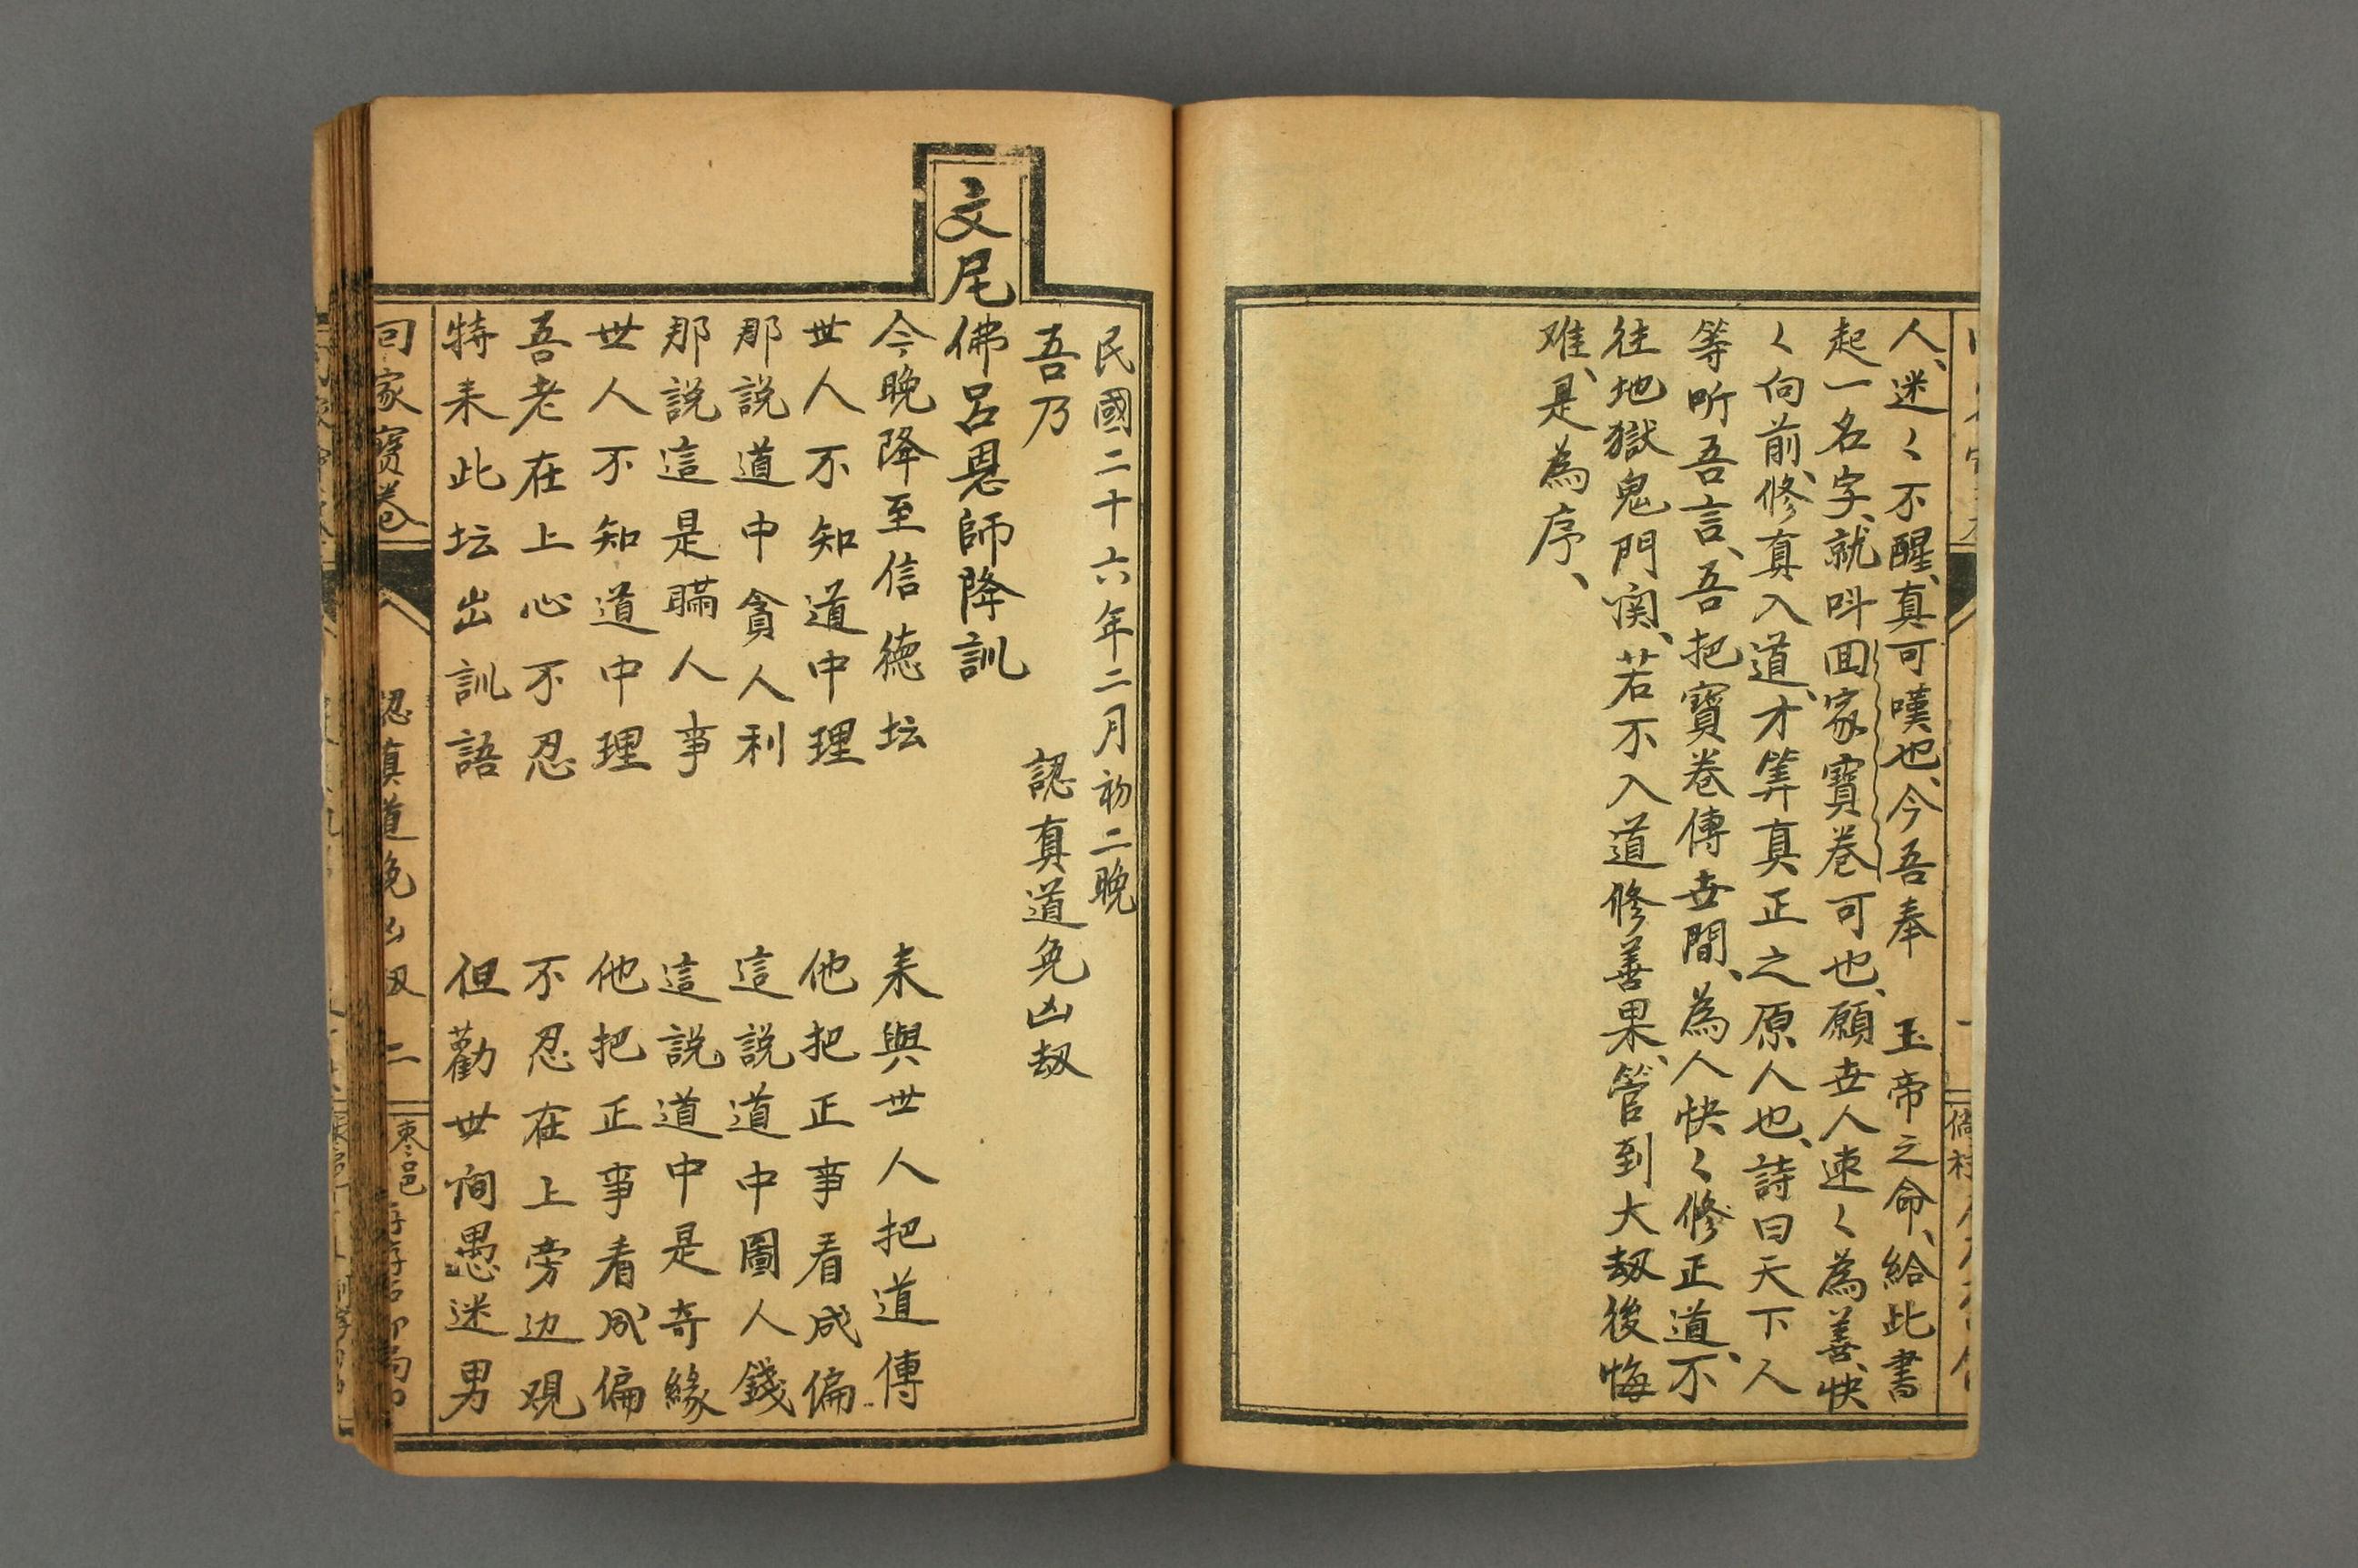 人、迷〻不醒、真可嘆也、今吾奉　玉帝之命、給此書
起一名字、就呌囬家寶卷可也、願世人速〻為善、快
〻向前、修真入道、才筭真正之原人也、詩曰天下人
等听吾言、吾把寶卷傳世間、為人快〻修正道、不
往地獄鬼門関、若不入道修善果、管到大刼後悔
难、是為序、
民國二十六年二月初二晚
吾乃　認真道免凶刼
文尾佛呂恩師降訓
今晚降至信德坛　耒與世人把道傳
世人不知道中理　他把正事看成偏
那説道中貪人利　這説道中圖人錢
那説這是瞞人事　這説道中是奇緣
世人不知道中理　他把正事看成偏
吾老在上心不忍　不忍在上旁边观
特耒此坛出訓語　但勸世间愚迷男
回家寶卷　認真道免凶刼　二　棗邑